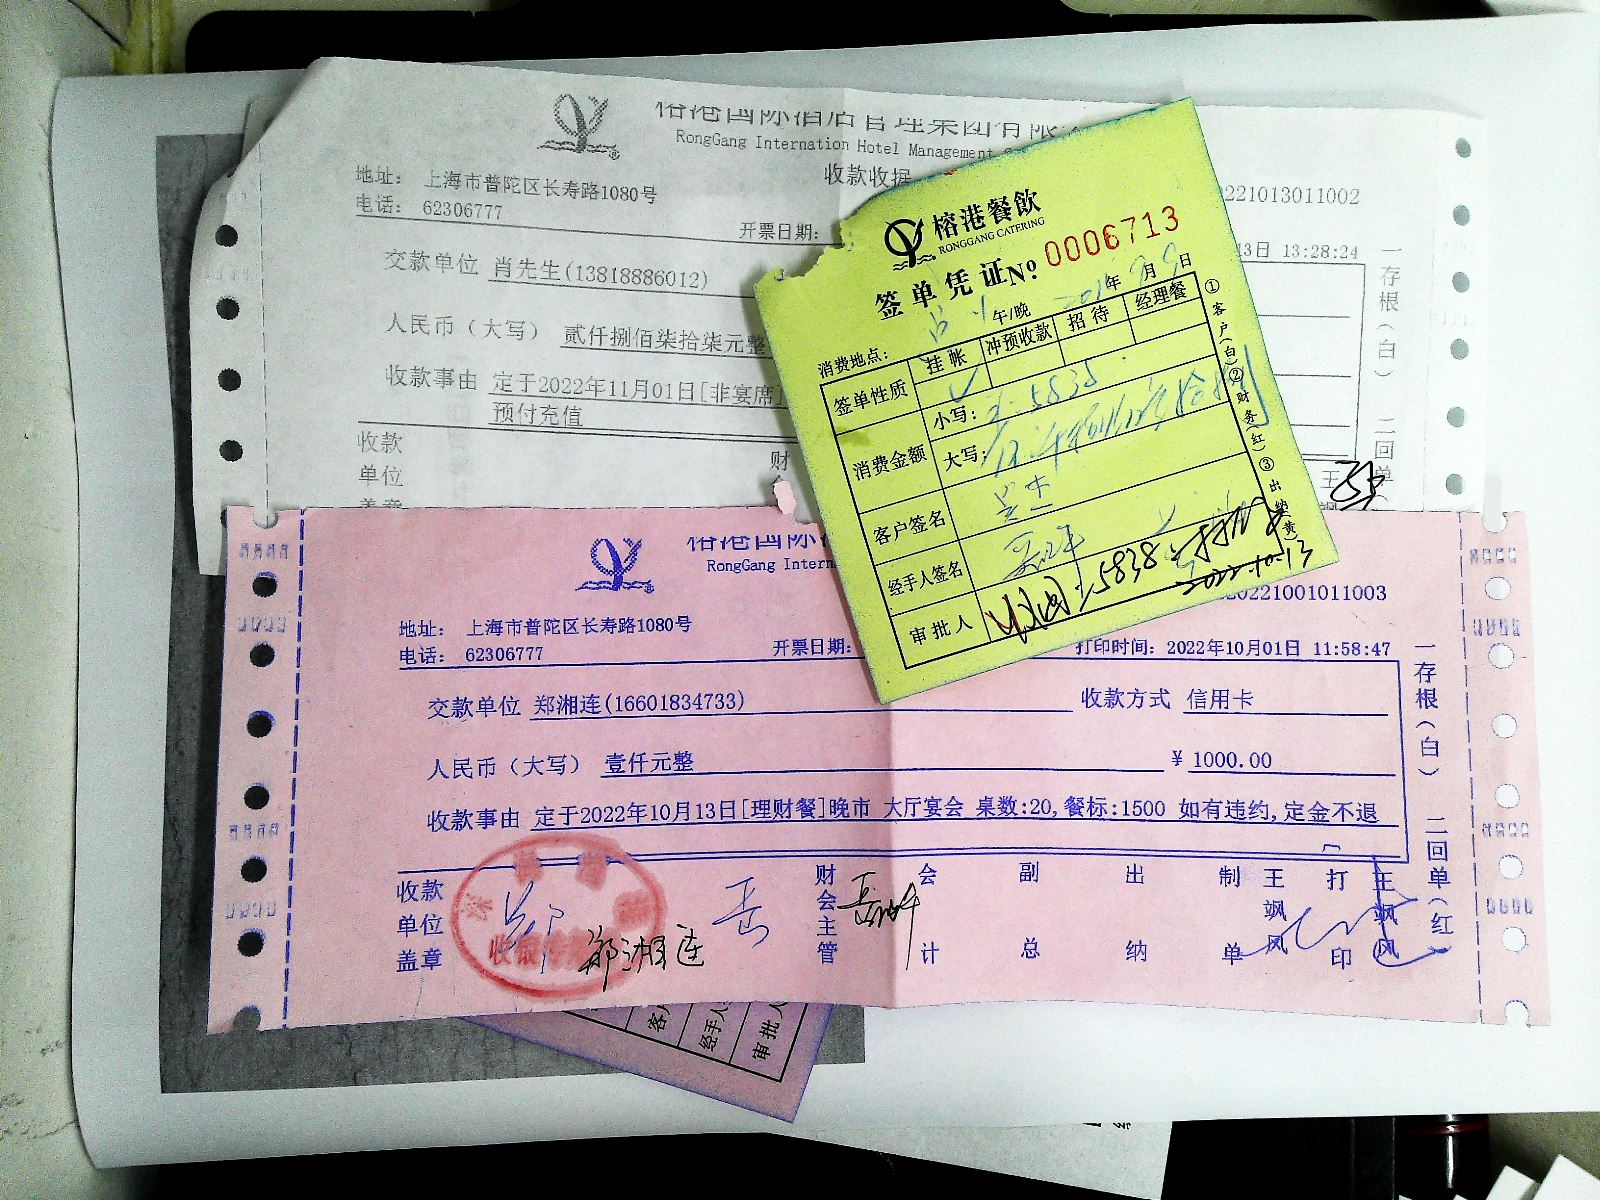 榕港国际酒店管理集团有限
RongGang Internation Hotel Management
收款收据
地址： 上海市普陀区长寿路1080号
221013011002
电话： 62306777
开票日期：
13日 13:28:24
交款单位 肖先生(13818886012)
人民币（大写） 贰仟捌佰柒拾柒元整
收款事由 定于2022年11月01日[非宴席]
预付充值
收款
单位
盖章
财
王
飒
一存根(白) 二回单
榕港餐飲
RONGGANG CATERING
签单凭证No 0006713
年 月 日
午/晚
消费地点：
签单性质 挂帐 冲预收款 招待 经理餐
消费金额 小写： 5838
大写：
客户签名
经手人签名
审批人
5838
2022.10.13
①客户(白)②财务(红)③出纳(黄)
榕港国际
RongGang Intern
20221001011003
地址： 上海市普陀区长寿路1080号
电话： 62306777
开票日期：
打印时间：2022年10月01日 11:58:47
交款单位 郑湘连(16601834733)
收款方式 信用卡
人民币（大写） 壹仟元整
¥ 1000.00
收款事由 定于2022年10月13日[理财餐]晚市 大厅宴会 桌数:20,餐标:1500 如有违约,定金不退
收款单位盖章
郑湘连
财会主管
会计
副总
出纳
制单
王飒风
打印
王飒风
一存根(白) 二回单(红)
客
经手人
审批人